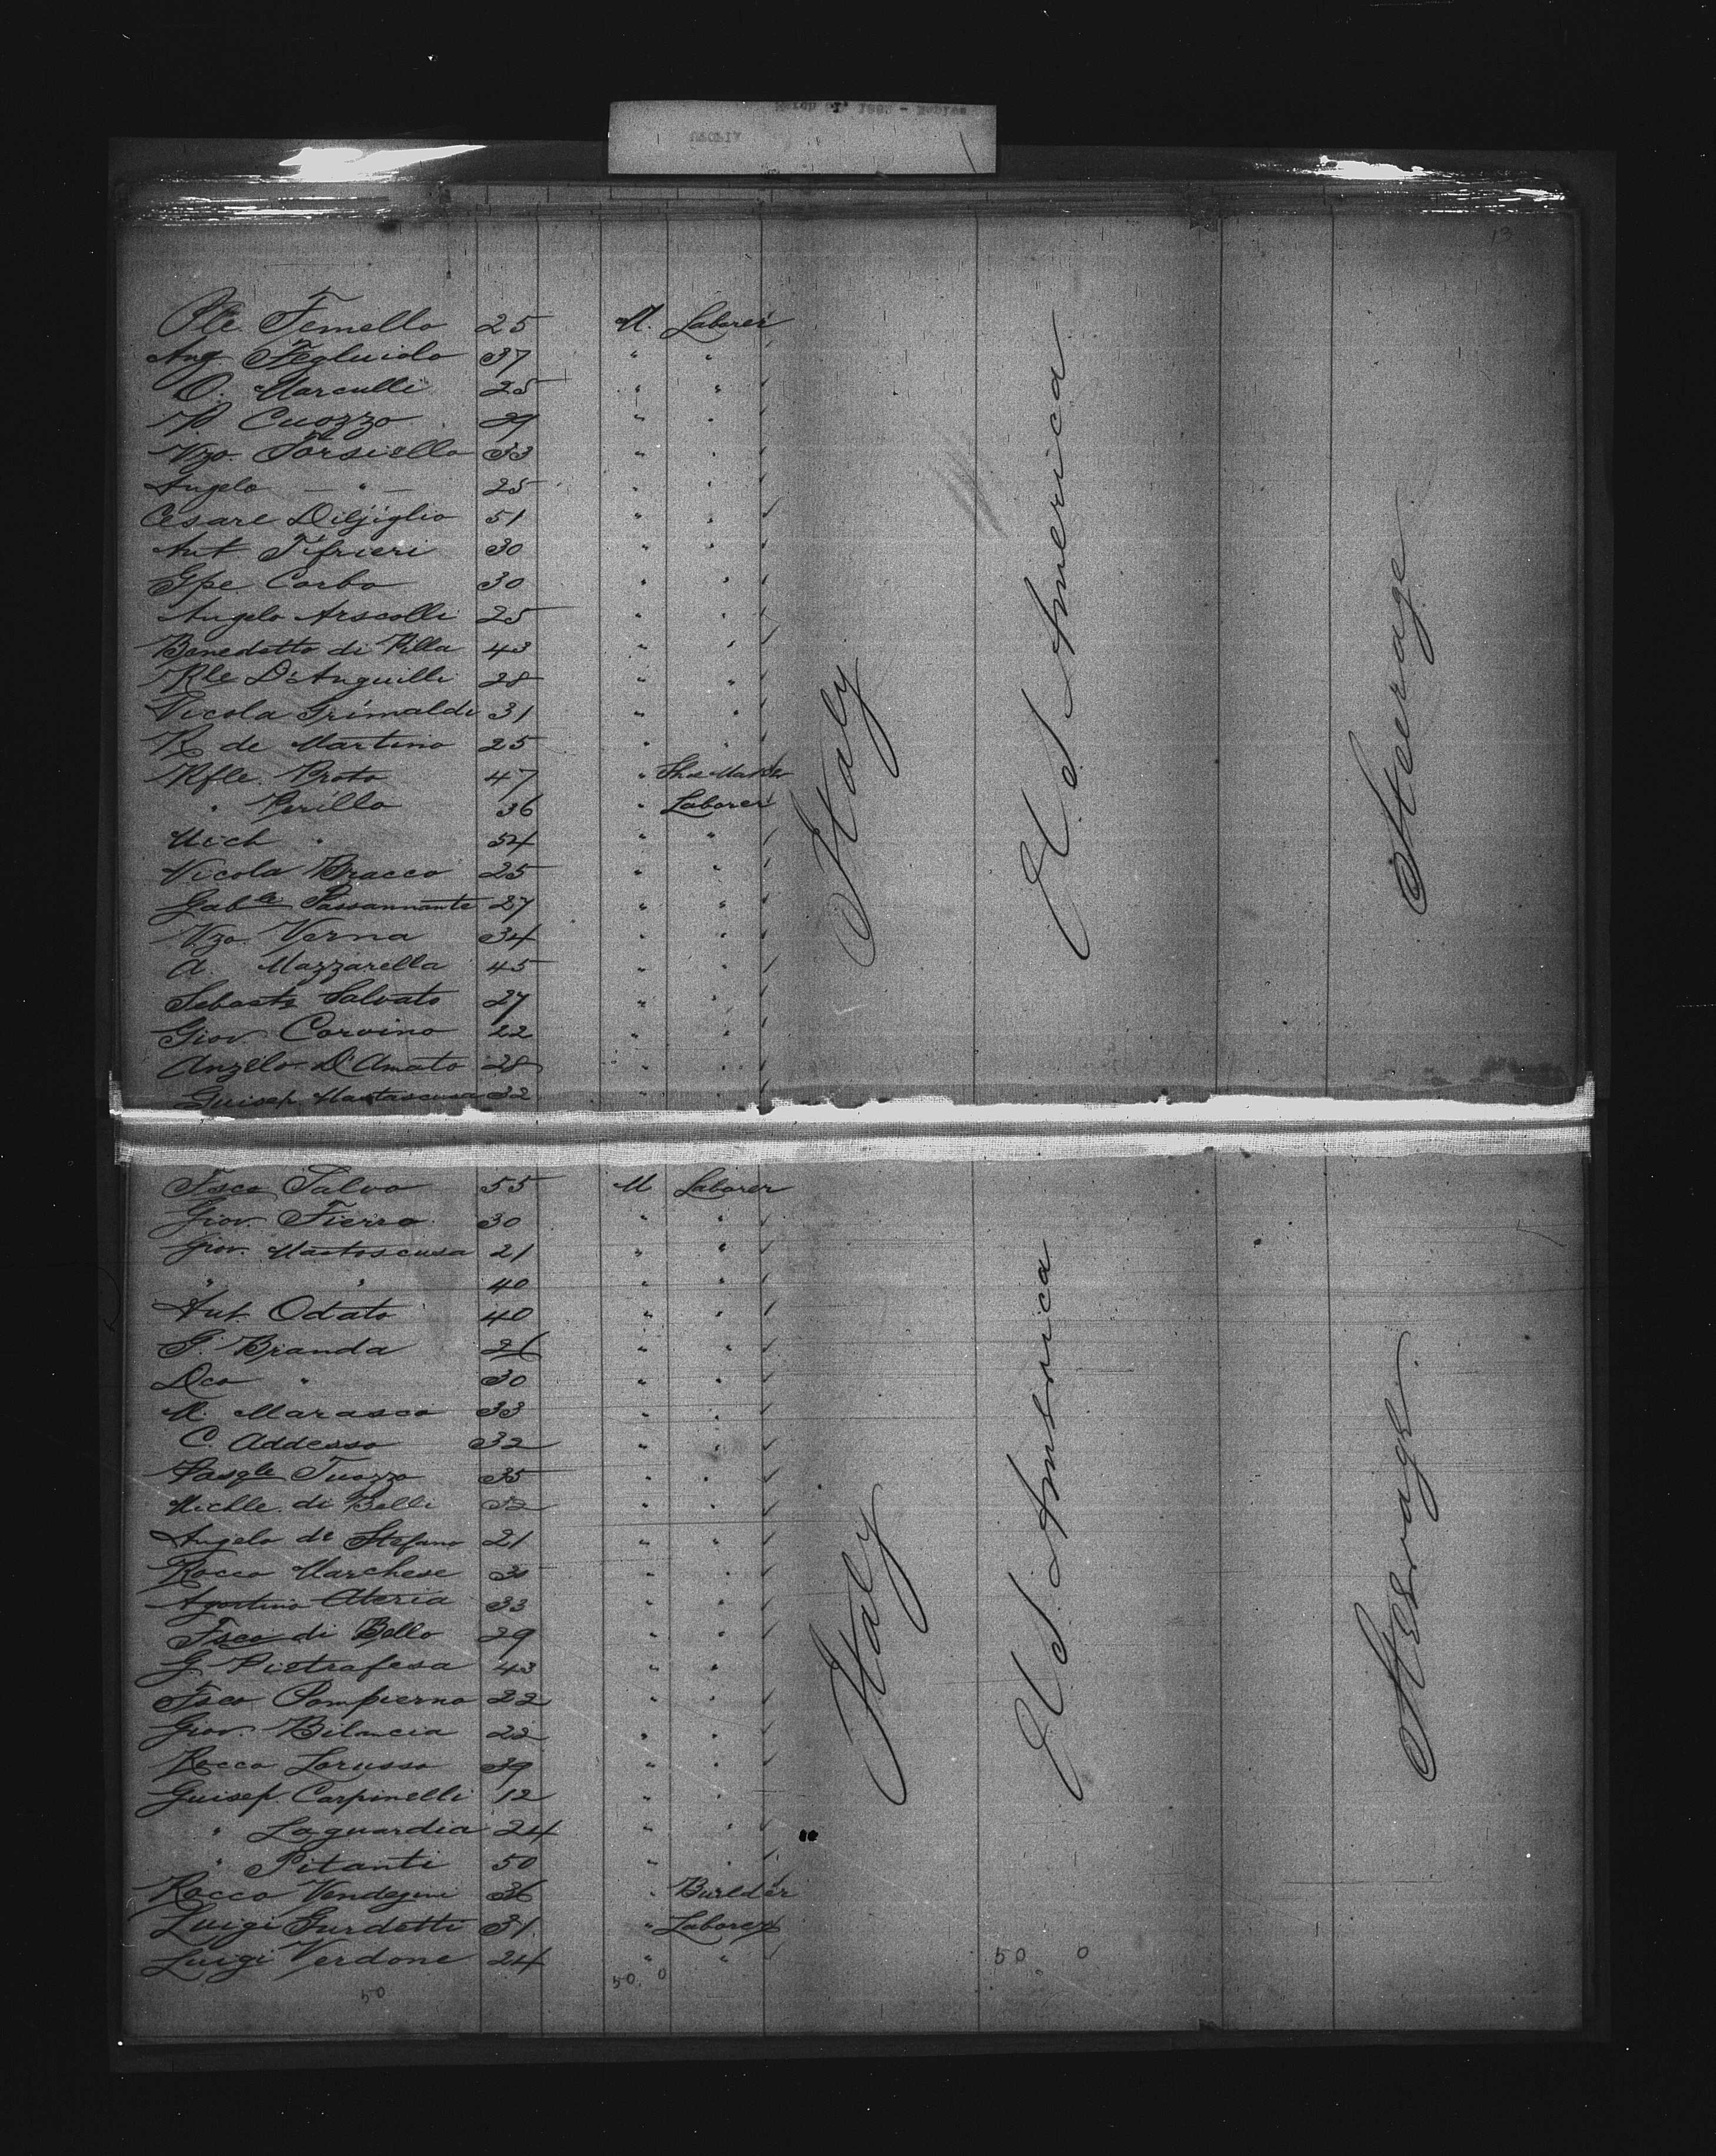 13
Ple. Femello 25 M. Laborer
Ang. 37 " "
O. Marculli 25 " "
Cuozzo 29 " "
Vzo. Torsiello 33 " "
Angelo — " — 25 " "
Cesare 51 " "
Ant 30 " "
Gpe. Corbo 30 " "
Angelo Arscolli 25 " "
Benedotto di Pilla 43 " "
Rle D'Anguilli 28 " "
Nicola Grimaldi 31 " "
R. de Martino 25 " "
Rfle. Proto 47 " Shoe Maker
" Perillo 36 " Laborer
Mich " 54 " "
Nicola Bracco 25 " "
Gable Passannante 27 " "
Vzo. Verna 34 " "
A. Mazzarella 45 " "
Sebast Salvato 27 " "
Giov. Corvino 22 " "
Angelo D'Amato 28 " "
Guisep. Mastascusa 32 " "
Italy
U. S. America
Steerage
Fsco Salvo 55 M Laborer
Giov. Fierro 30 " "
Giov. Mastoscusa 21 " "
" " 40 " "
Ant. Odato 40 " "
G. Branda 26 " "
Dco " 30 " "
M. Marasco 33 " "
C. Addesso 32 " "
Pasqle Tuozzo 35 " "
Michle. di Belli 32 " "
Angelo di Stefano 21 " "
Rocco Marchese 30 " "
Agostino Ateria 33 " "
Fsco di Bello 29 " "
G. Pietrafesa 43 " "
Fsco Pompierno 22 " "
Giov. Bilancia 22 " "
Rocco Lorusso 39 " "
Guisep. Carpinelli 12 " "
" Laguardia 24 " "
" Pitanti 50 " "
Rocco 36 " Builder
Luigi Gurdetti 31 " Laborer
Luigi Verdone 24 " "
Italy
U. S. America
Steerage
50 50. 0 50 0